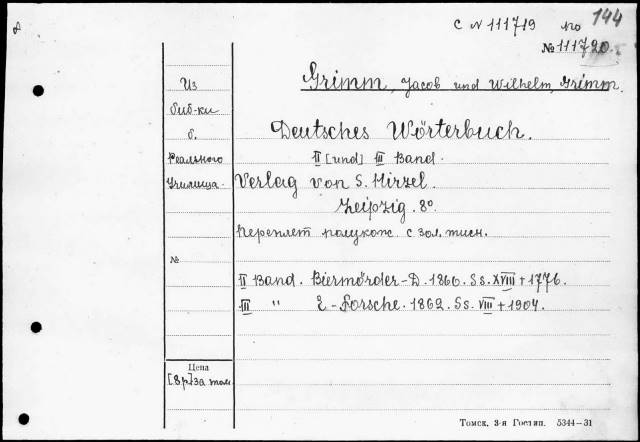 С N 111719 по 144
№ 111720.
Grimm, Jacob und Wilhelm, Grimm.
Из
биб-ки
б.
Реального
Училища.
Deutsches Wörterbuch.
II [und] III Band.
Verlag von S. Hirzel.
Leipzig. 8°.
Переплет полукож. с зол. тисн.
№
II Band. Biermörder-D. 1860. Ss. XVIII + 1776.
III " E-Forsche. 1862. Ss. VIII + 1904.
Цена
[8 р] за том.
Томск, 3-я Гостип. 5344—31